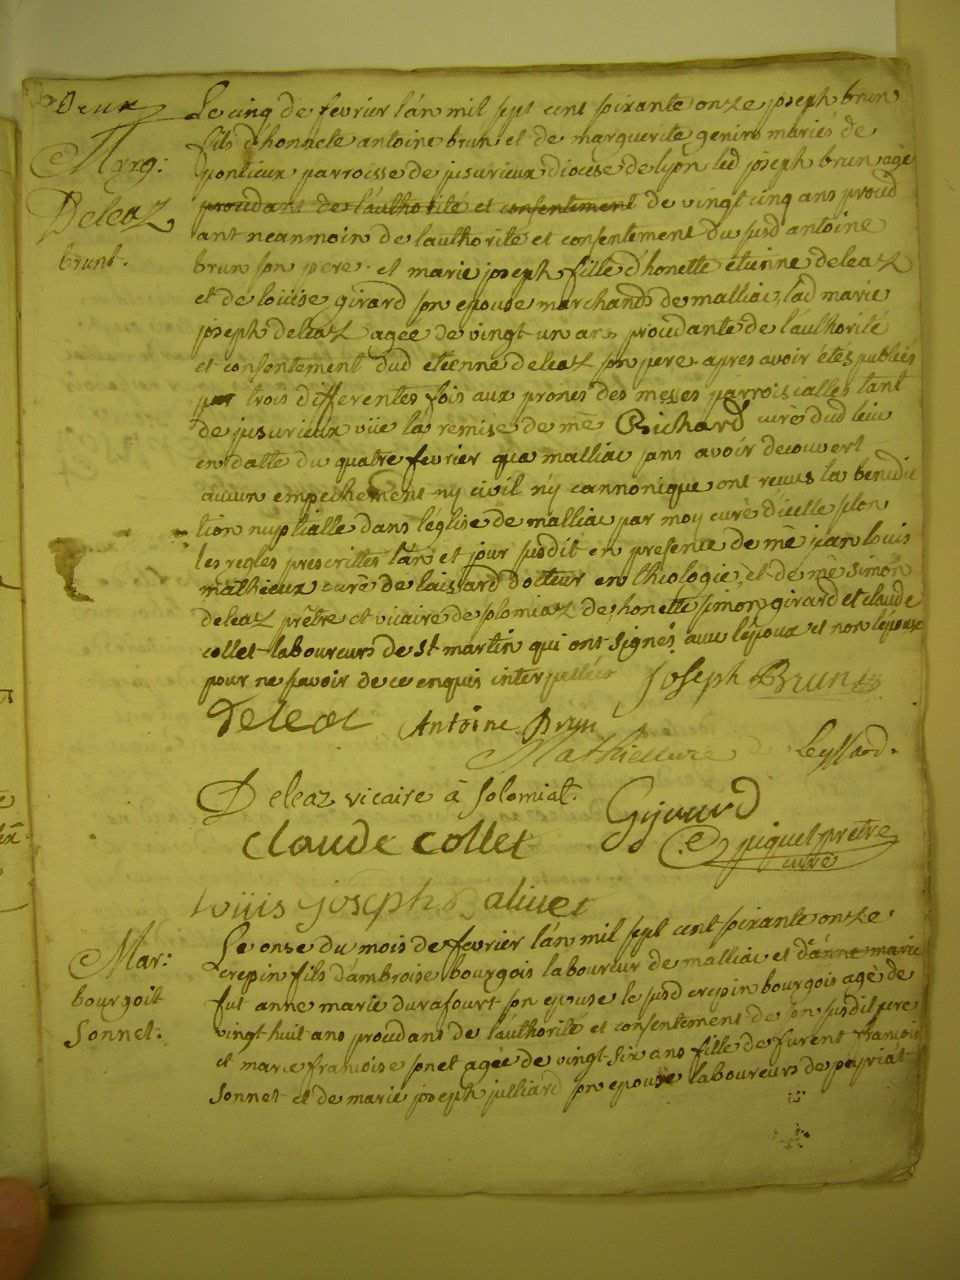 Deux
Marg:
Deleaz
brunt.
Le cinq de fevrier l'an mil sept cent soixante onze joseph brun
fils d'honnete antoine brun et de marguerite genin mariés de
poncieux parroisse de jusurieux diocése de lyon led joseph brun agé
proudant de l'authorité et consentement de vingt cinq ans proud
ant neanmoin de l'authorité et consentement du susd antoine
brun son pere. et marie joseph fille d'honette etienne deleaz
et de loüise girard son epouse marchands de malliac, lad marie
joseph deleaz agée de vingt un ans proudante de l'authorité
et consentement dud etienne deleaz son pere. apres avoir étés publiés
par trois differentes fois aux prones des messes parroiscalles tant
de jusurieux vüe la remise de mē Richard curé dud lieu
en datte du quatre fevrier que malliac sans avoir decouvert
aucun empechement ny civil n'y cannonique ont recus la benedic
tion nuptialle dans l'église de malliac par moy curé d'icelle selon
les regles prescrittes l'an et jour susdit en presence de mē jean louis
mathieux curé de laissard docteur en theologie, et de mē simon
deleaz prêtre et vicaire de solomiaz de honette simon girard et claude
collet laboureurs de st martin qui ont signés avec l'époux et non l'épouse
pour ne savoir de ce enquis interpellés joseph Brun
deleaz Antoine Brun
Mathieu cure de Leyssard.
Deleaz vicaire à solomiat.
Girard
Claude Collet piquet prêtre
curé
Louiis joseph Balivet
Mar:
bourgoit
Sonnet.
Le onse du mois de fevrier l'an mil sept cent soixante onze.
crepin fils d'ambroise bourgois laboureur de malliac et d'anne marie
fut anne marie durafourt son epouse le susd crepin bourgois agé de
vingt huit ans proudans de l'authorité et consentement de son susdit pere
et marie francoise sonet agée de vingt six ans fille de furent francois
Sonnet et de marie joseph julliard son epouse laboureurs de peyriat